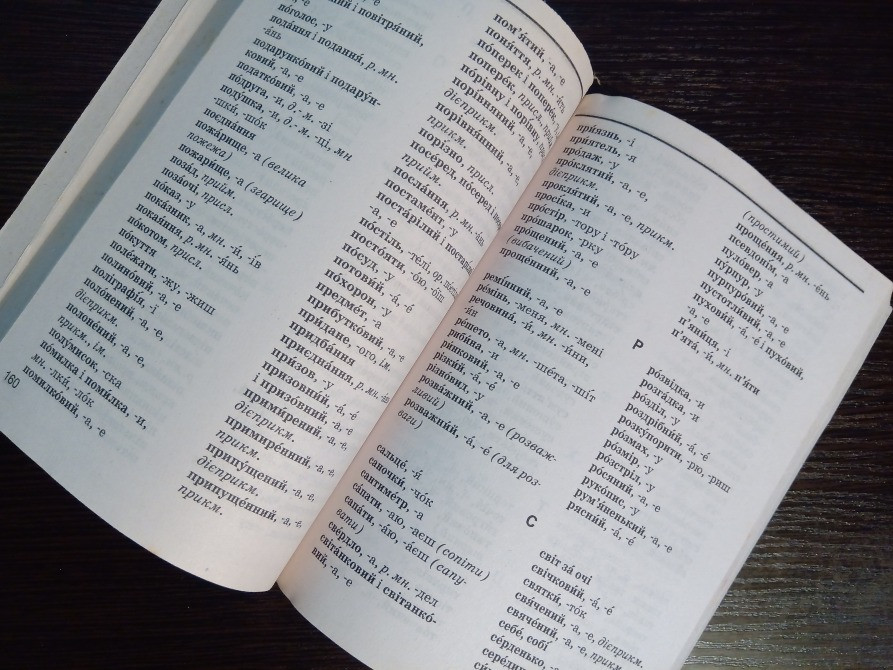 і повітря́ний,
по́голос, -у
пода́ння і пода́ння́, р. мн.
-а́нь
подарунко́вий і подару́н-
ковий, -а, -е
пода́тко́вий, -а, -е
по́друга, -и, д.-м. -зі
поду́шка, -и, д.-м. -ці, мн
-шки́, -шо́к
поєдна́ння
пожа́рище, -а (велика
пожежа)
пожари́ще, -а (згарище)
поза́д, прийм.
позао́чі, присл.
по́каз, -у
пока́зник, -а, мн. -и́, -і́в
покая́ння, р. мн. -я́нь
по́котом, присл.
по́куття
поле́жати, -жу, -жиш
полино́вий, -а, -е
полігра́фія, -ї
поло́нений, -а, -е,
дієприкм.
полоне́ний, -а, -е,
прикм., ім.
полу́мисок, -ска
по́милка і поми́лка, -и,
мн. -лки́, -ло́к
помилко́вий, -а, -е
160
пом’я́тий, -а, -е
поня́ття, р. мн. -я́ть
по́перек і попере́к,
попере́к, присл., прийм.
по́рівну і порі́вну,
порі́внаний, -а, -е,
дієприкм.
порівня́нний, -а, -е,
прикм.
порі́зно, присл.
посере́д,
прийм.
посла́ння, р. мн. -а́нь
постаме́нт, -у
постарі́лий і
-а, -е
по́стіль,
постоя́ти, -ою́, -ої́ш
по́суд, -у
потови́й, -а́, -е́
по́хорон, -у
предме́т, -а
прибутко́вий, -а, -е
при́дане, -ого, ім.
придба́ння
приєдна́ння, р. мн.
при́зов, -у
призовни́й, -а́, -е́
і призо́вний, -а, -е
прими́рений, -а, -е,
дієприкм.
примире́нний, -а, -е,
прикм.
припу́щений, -а, -е,
дієприкм.
припусте́нний, -а, -е,
прикм.
при́язнь, -і
при́ятель, -я
про́даж, -у
про́клятий, -а, -е,
дієприкм.
прокля́тий, -а, -е, прикм.
про́сіка, -и
про́стір, -тору і -то́ру
про́шарок, -рку
про́щений, -а, -е
(вибачений)
проще́нний, -а, -е
(простимий)
проще́ння, р. мн. -е́нь
псевдоні́м, -а
пуло́вер, -а
пу́рпур, -у
пурпуро́вий, -а, -е
пустотли́вий, -а, -е
пухови́й, -а́, -е́ і пухо́вий,
-а, -е
п’яни́ця, -і
п’ята́, -и́, мн. п’я́ти
Р
ремі́нний, -а, -е
ре́мінь, -меня, мн. -мені
речовина́, -и́, мн. -и́ни,
-и́н
ре́шето, -а, мн. -ше́та, -ші́т
риби́на, -и
ри́нковий, -а, -е
різки́й, -а́, -е́
різно́вид, -у
розва́жний, -а, -е (розваж-
ливий)
розважни́й, -а́, -е́ (для роз-
ваги)
ро́звідка, -и
ро́згадка, -и
ро́зділ, -у
роздрібни́й, -а́, -е́
розку́порити, -рю, -риш
ро́змах, -у
ро́змір, -у
ро́зстріл, -у
ро́сяний, -а, -е
руко́пис, -у
рум’я́ненький, -а, -е
рясни́й, -а́, -е́
С
сальце́, -я́
саночки́, -чо́к
сантиме́тр, -а
са́пати, -аю, -аєш (сопіти)
сапа́ти, -а́ю, -а́єш (сапу-
вати)
све́рдло, -а, р. мн. -дел
світа́нковий і світанко́-
вий, -а, -е
світ за́ очі
свічкови́й, -а́, -е́
святки́, -то́к
свя́чений, -а, -е, дієприкм.
свяче́ний, -а, -е, прикм.
себе́, собі́
се́рденько, -а